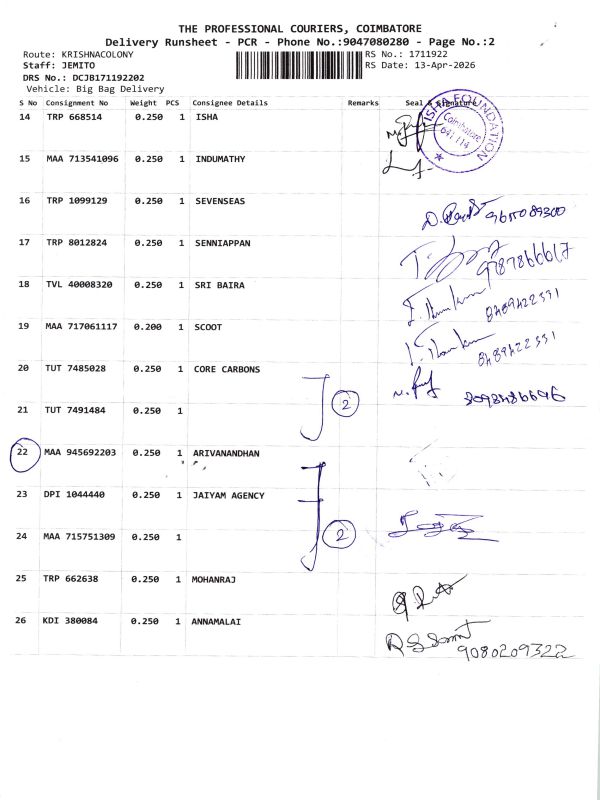 THE PROFESSIONAL COURIERS, COIMBATORE
Delivery Runsheet - PCR - Phone No.:9047080280 - Page No.:2
Route: KRISHNACOLONY
RS No.: 1711922
Staff: JEMITO
RS Date: 13-Apr-2026
DRS No.: DCJB171192202
Vehicle: Big Bag Delivery
S No Consignment No Weight PCS Consignee Details Remarks Seal & Signature
14 TRP 668514 0.250 1 ISHA
ISHA FOUNDATION
Coimbatore
641 114
15 MAA 713541096 0.250 1 INDUMATHY
16 TRP 1099129 0.250 1 SEVENSEAS
17 TRP 8012824 0.250 1 SENNIAPPAN
18 TVL 40008320 0.250 1 SRI BAIRA
8489422331
19 MAA 717061117 0.200 1 SCOOT
8489422331
20 TUT 7485028 0.250 1 CORE CARBONS
2
21 TUT 7491484 0.250 1
22 MAA 945692203 0.250 1 ARIVANANDHAN
23 DPI 1044440 0.250 1 JAIYAM AGENCY
24 MAA 715751309 0.250 1
2
25 TRP 662638 0.250 1 MOHANRAJ
26 KDI 380084 0.250 1 ANNAMALAI
9080209322